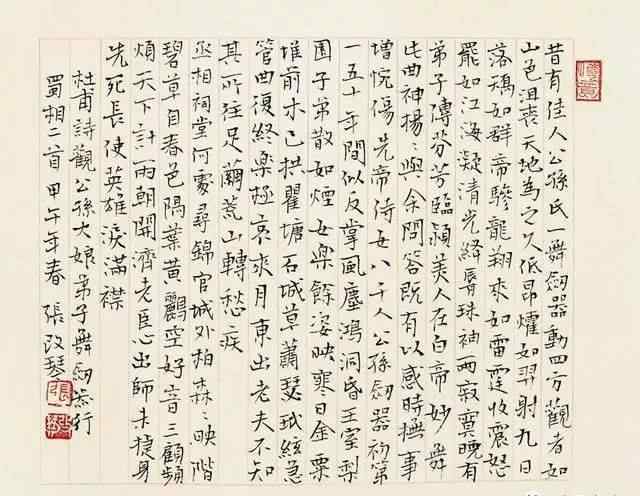 昔有佳人公孫氏一舞劍器動四方觀者如
山色沮喪天地為之久低昂燿如羿射九日
落矯如群帝驂龍翔來如雷霆收震怒
罷如江海凝清光絳脣珠袖兩寂寞晚有
弟子傳芬芳臨潁美人在白帝妙舞
此曲神揚〻與余問答既有以感時撫事
增惋傷先帝侍女八千人公孫劍器初第
一五十年間似反掌風塵鴻洞昏王室梨
園子弟散如煙女樂餘姿映寒日金粟
堆前木已拱瞿塘石城草蕭瑟玳絃急
管曲復終樂極哀來月東出老夫不知
其所往足繭荒山轉愁疾
丞相祠堂何處尋錦官城外柏森〻映階
碧草自春色隔葉黃鸝空好音三顧頻
煩天下計兩朝開濟老臣心出師未捷身
先死長使英雄淚滿襟
杜甫詩觀公孫大娘弟子舞劍器行
蜀相二首甲午年春 張改琴